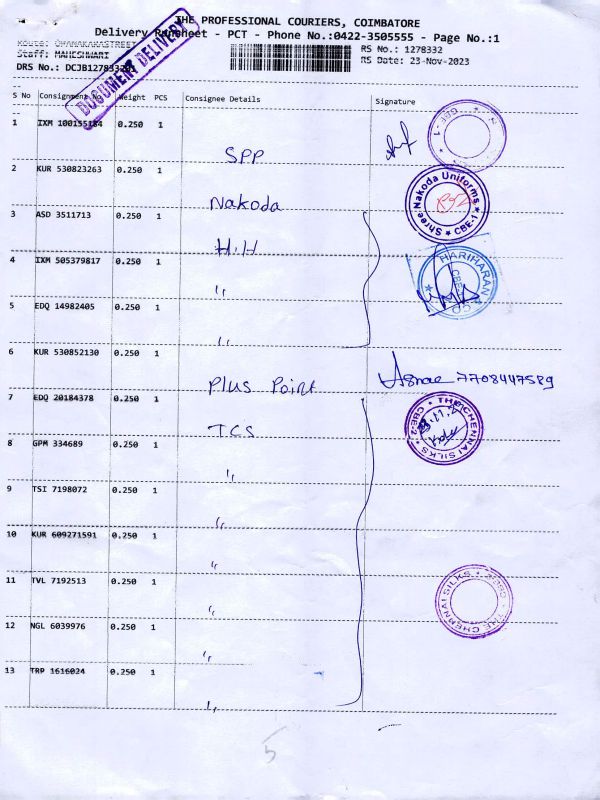 THE PROFESSIONAL COURIERS, COIMBATORE
Delivery Runsheet - PCT - Phone No.:0422-3505555 - Page No.:1
Staff: MAHESHWARI
RS No.: 1278332
DRS No.: DCJB127833201
RS Date: 23-Nov-2023
DOCUMENT DELIVERY
S No Consignment No Weight PCS Consignee Details Signature
1 IXM 100155184 0.250 1
SPP
CBE-1
2 KUR 530823263 0.250 1
Nakoda
Shree Nakoda Uniforms * CBE-1 *
3 ASD 3511713 0.250 1
H.H
4 IXM 505379817 0.250 1
"
HARIHARAN & CO
CBE
5 EDQ 14982405 0.250 1
"
6 KUR 530852130 0.250 1
Plus Point
7708447589
7 EDQ 20184378 0.250 1
TCS
* THE CHENNAI SILKS * CBE2
8 GPM 334689 0.250 1
"
9 TSI 7198072 0.250 1
"
10 KUR 609271591 0.250 1
"
11 TVL 7192513 0.250 1
"
THE CHENNAI SILKS *
12 NGL 6039976 0.250 1
"
13 TRP 1616024 0.250 1
"
5